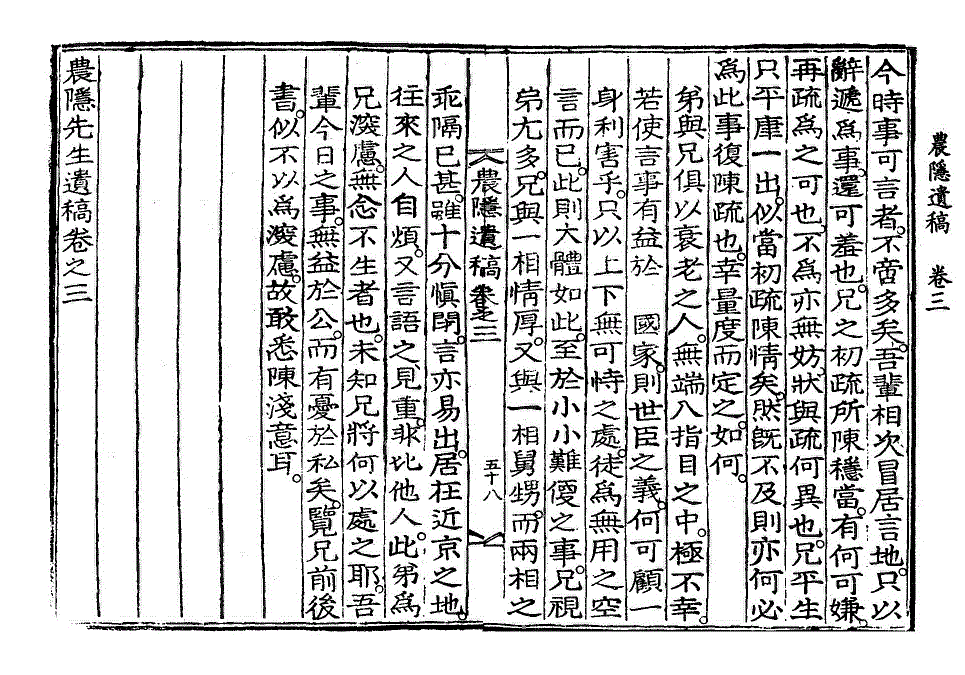 農隱遺稿　卷三
今時事可言者。不啻多矣。吾輩相次冒居言地。只以
辭遞爲事。還可羞也。兄之初疏所陳穩當。有何可嫌。
再疏爲之可也。不爲亦無妨。狀與疏何異也。兄平生
只平康一出。似當初疏陳情矣。然旣不及則亦何必
爲此事復陳疏也。幸量度而定之如何。
弟與兄俱以衰老之人。無端入指目之中。極不幸。
若使言事有益於　國家。則世臣之義。何可顧一
身利害乎。只以上下無可恃之處。徒爲無用之空
言而已。此則大體如此。至於小小難便之事。兄視
弟尤多。兄與一相情厚。又與一相舅甥。而兩相之
農隱遺稿卷之三
五十八
乖隔已甚。雖十分愼閉。言亦易出。居在近京之地。
往來之人自煩。又言語之見重。非比他人。此弟爲
兄深慮。無念不生者也。未知兄將何以處之耶。吾
輩今日之事。無益於公。而有憂於私矣。覽兄前後
書。似不以爲深慮。故敢悉陳淺意耳。
農隱先生遺稿卷之三